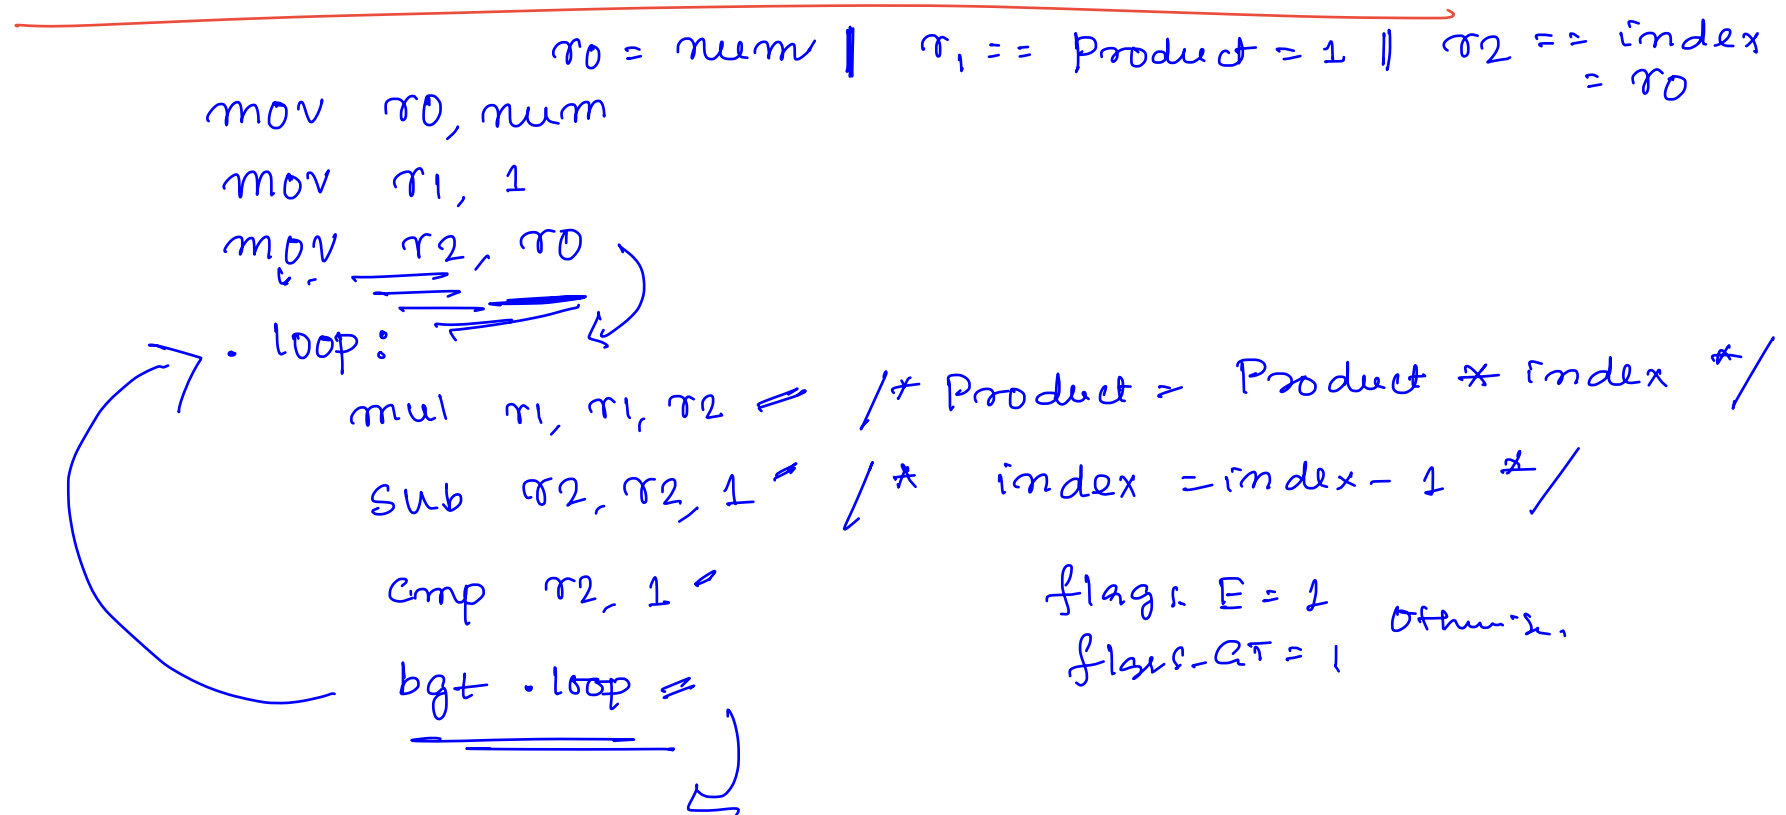 r0 = num || r1 == Product = 1 || r2 == index
= r0
mov r0, num
mov r1, 1
mov r2, r0
. loop:
mul r1, r1, r2 /* Product = Product * index */
sub r2, r2, 1 /* index = index - 1 */
cmp r2, 1
flags. E = 1
flags_GT = 1 Otherwise.
bgt . loop